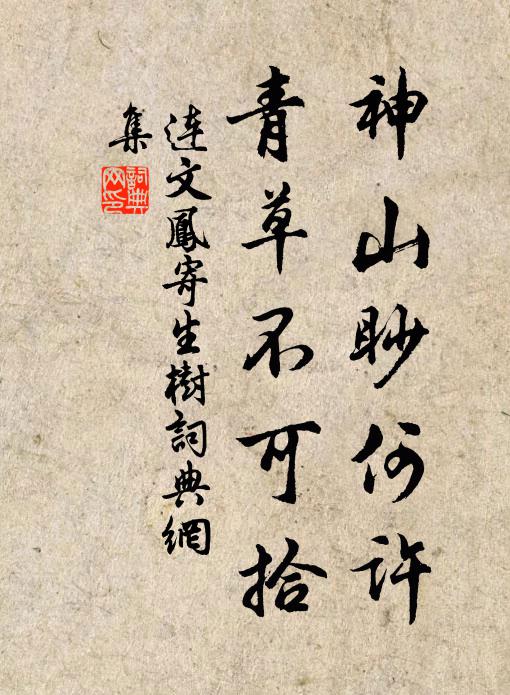 神山眇何許
青草不可拾
連文鳳寄生樹詞典網
集
詞典
网印